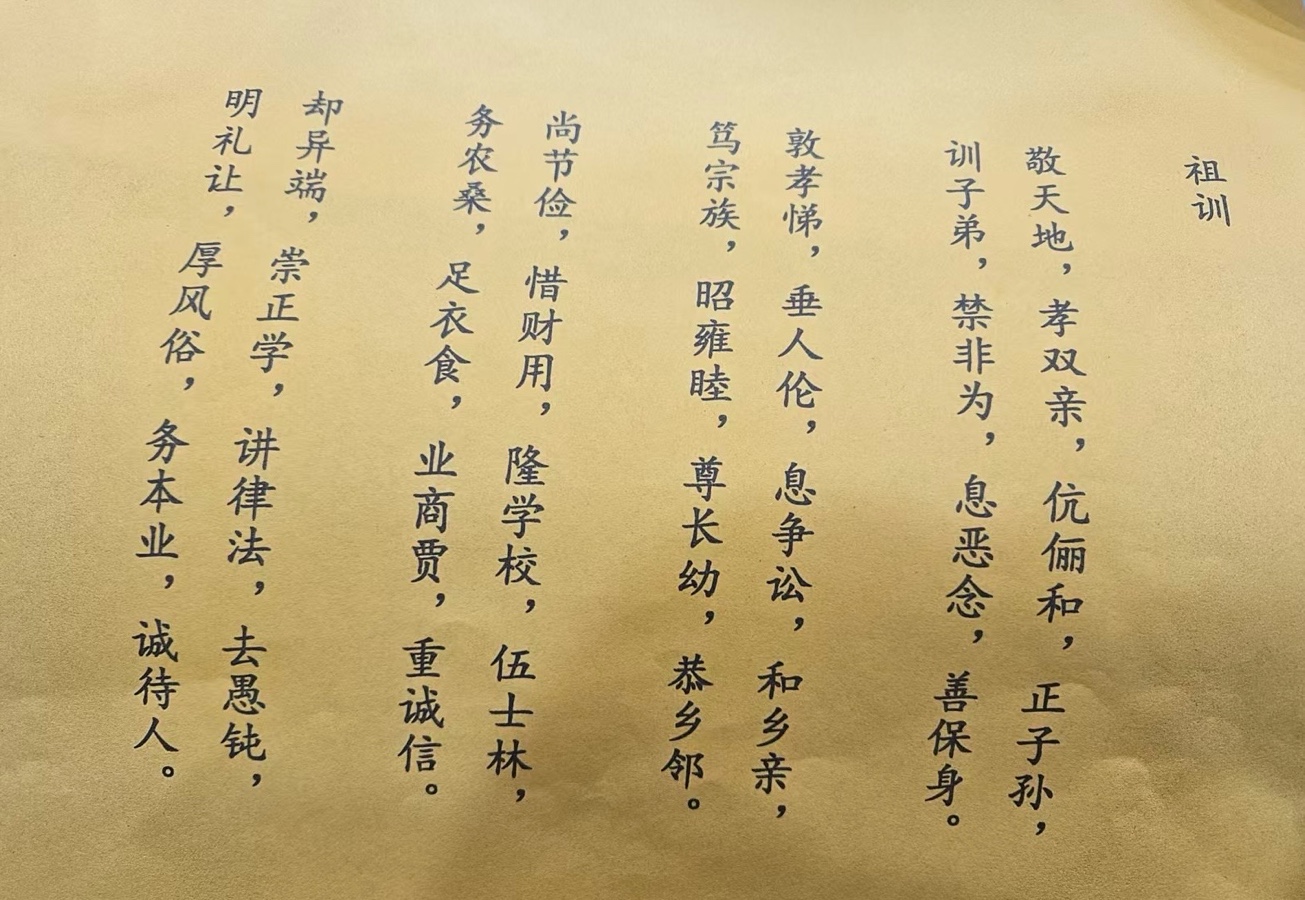 祖训
敬天地，孝双亲，伉俪和，正子孙，
训子弟，禁非为，息恶念，善保身。
敦孝悌，垂人伦，息争讼，和乡亲，
笃宗族，昭雍睦，尊长幼，恭乡邻。
尚节俭，惜财用，隆学校，伍士林，
务农桑，足衣食，业商贾，重诚信。
却异端，崇正学，讲律法，去愚钝，
明礼让，厚风俗，务本业，诚待人。